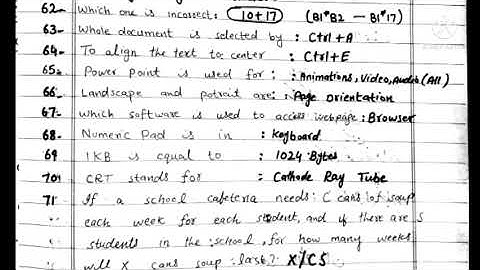 62- Which one is incorrect: 10+17 (B1*B2 - B1*17)
63- Whole document is selected by : Ctrl+A
64- To align the text to center : Ctrl+E
65- Power point is used for : Animations, Video, Audio (All)
66- Landscape and potrait are: Page orientation
67- which software is used to access webpage: Browser
68- Numeric Pad is in : Keyboard.
69 1KB is equal to : 1024 Bytes
70 CRT stands for : Cathode Ray Tube
71 If a school cafeteria needs C cans of soup
each week for each student, and if there are S
students in the school, for how many weeks
will X cans soup last? X/CS